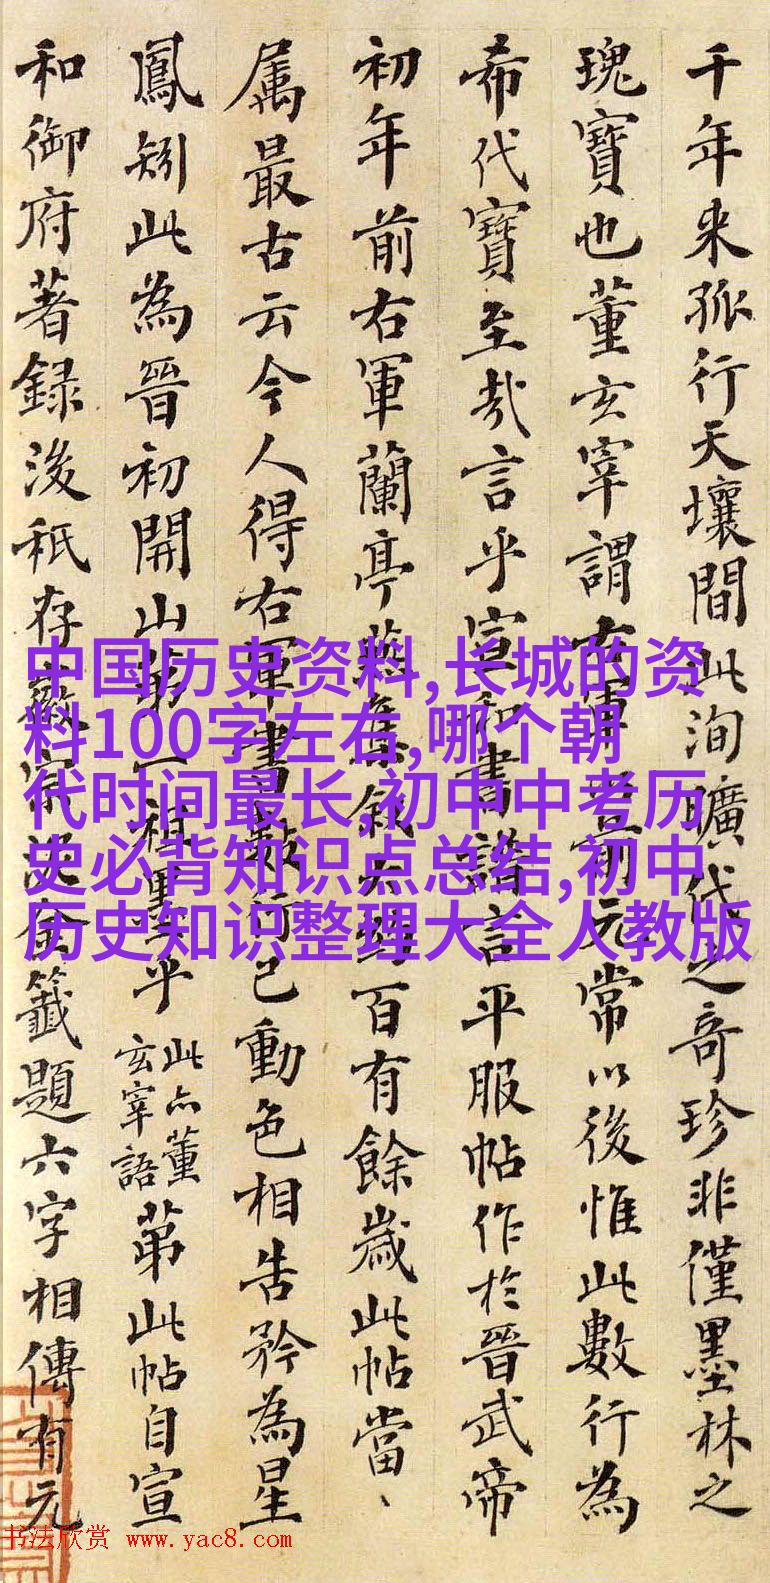 千年来孤行天壤間此洵曠代之奇珍非僅墨林之
瑰寶也董玄宰謂右軍以前元常以後惟此數行為
希代寶至哉言乎宣和書譜言平服帖作於晉武帝
初年前右軍蘭亭燕集敘大約百有餘歲此帖當、
属最古云今人得右軍書數行已動色相告矜為星
鳳矧此為晉初開山第一祖墨乎此亦董玄宰語第此帖自宣
和御府著録後秪存徽宗泥金籤題六字相傳有元
中国历史资料,长城的资
料100字左右,哪个朝
代时间最长,初中中考历
史必背知识点总结,初中
历史知识整理大全人教版
书法欣赏 www.yac8.com